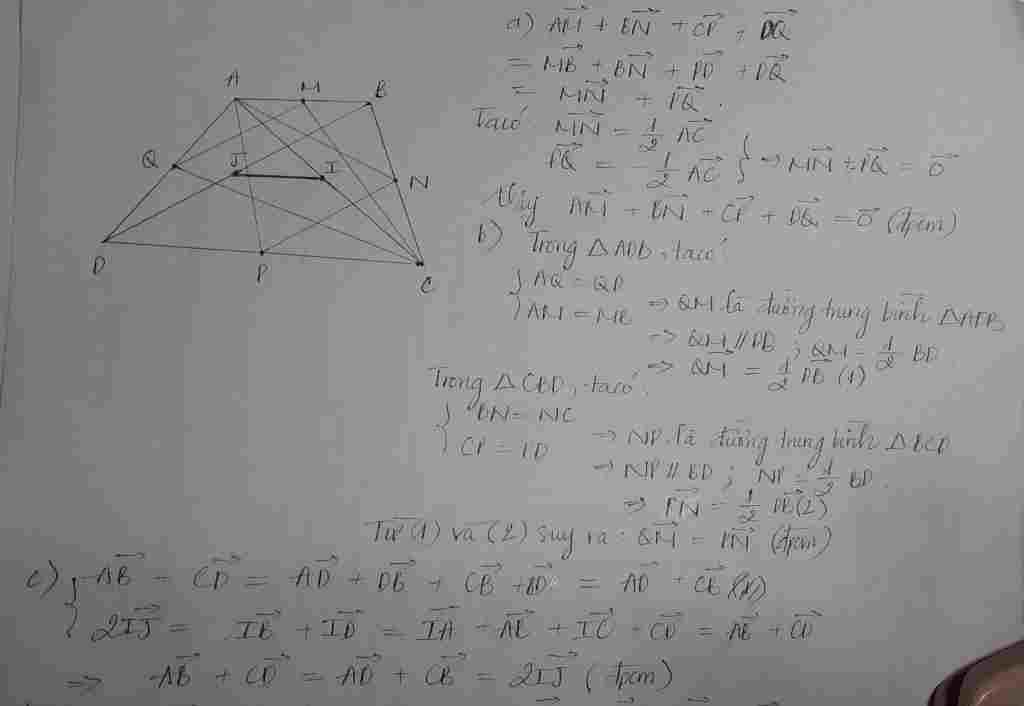 A M B
Q J I N
D P C
a) AM + BN + CP + DQ
= MB + BN + PD + DQ
= MN + PQ.
Ta có MN = 1/2 AC
PQ = -1/2 AC } => MN + PQ = 0
Vậy AM + BN + CP + DQ = 0 (đpcm)
b) Trong △ADB, ta có
{ AQ = QD
AM = MB => QM là đường trung bình △ADB
=> QM // DB ; QM = 1/2 BD
=> QM = 1/2 DB (1)
Trong △CBD, ta có
{ BN = NC
CP = PD => NP là đường trung bình △BCD
=> NP // BD ; NP = 1/2 BD.
=> PN = 1/2 DB (2)
Từ (1) và (2) suy ra: QM = PN (đpcm)
c) { AB + CD = AD + DB + CB + BD = AD + CB (1)
2IJ = IB + ID = IA + AB + IC + CD = AB + CD
=> AB + CD = AD + CB = 2IJ (đpcm)